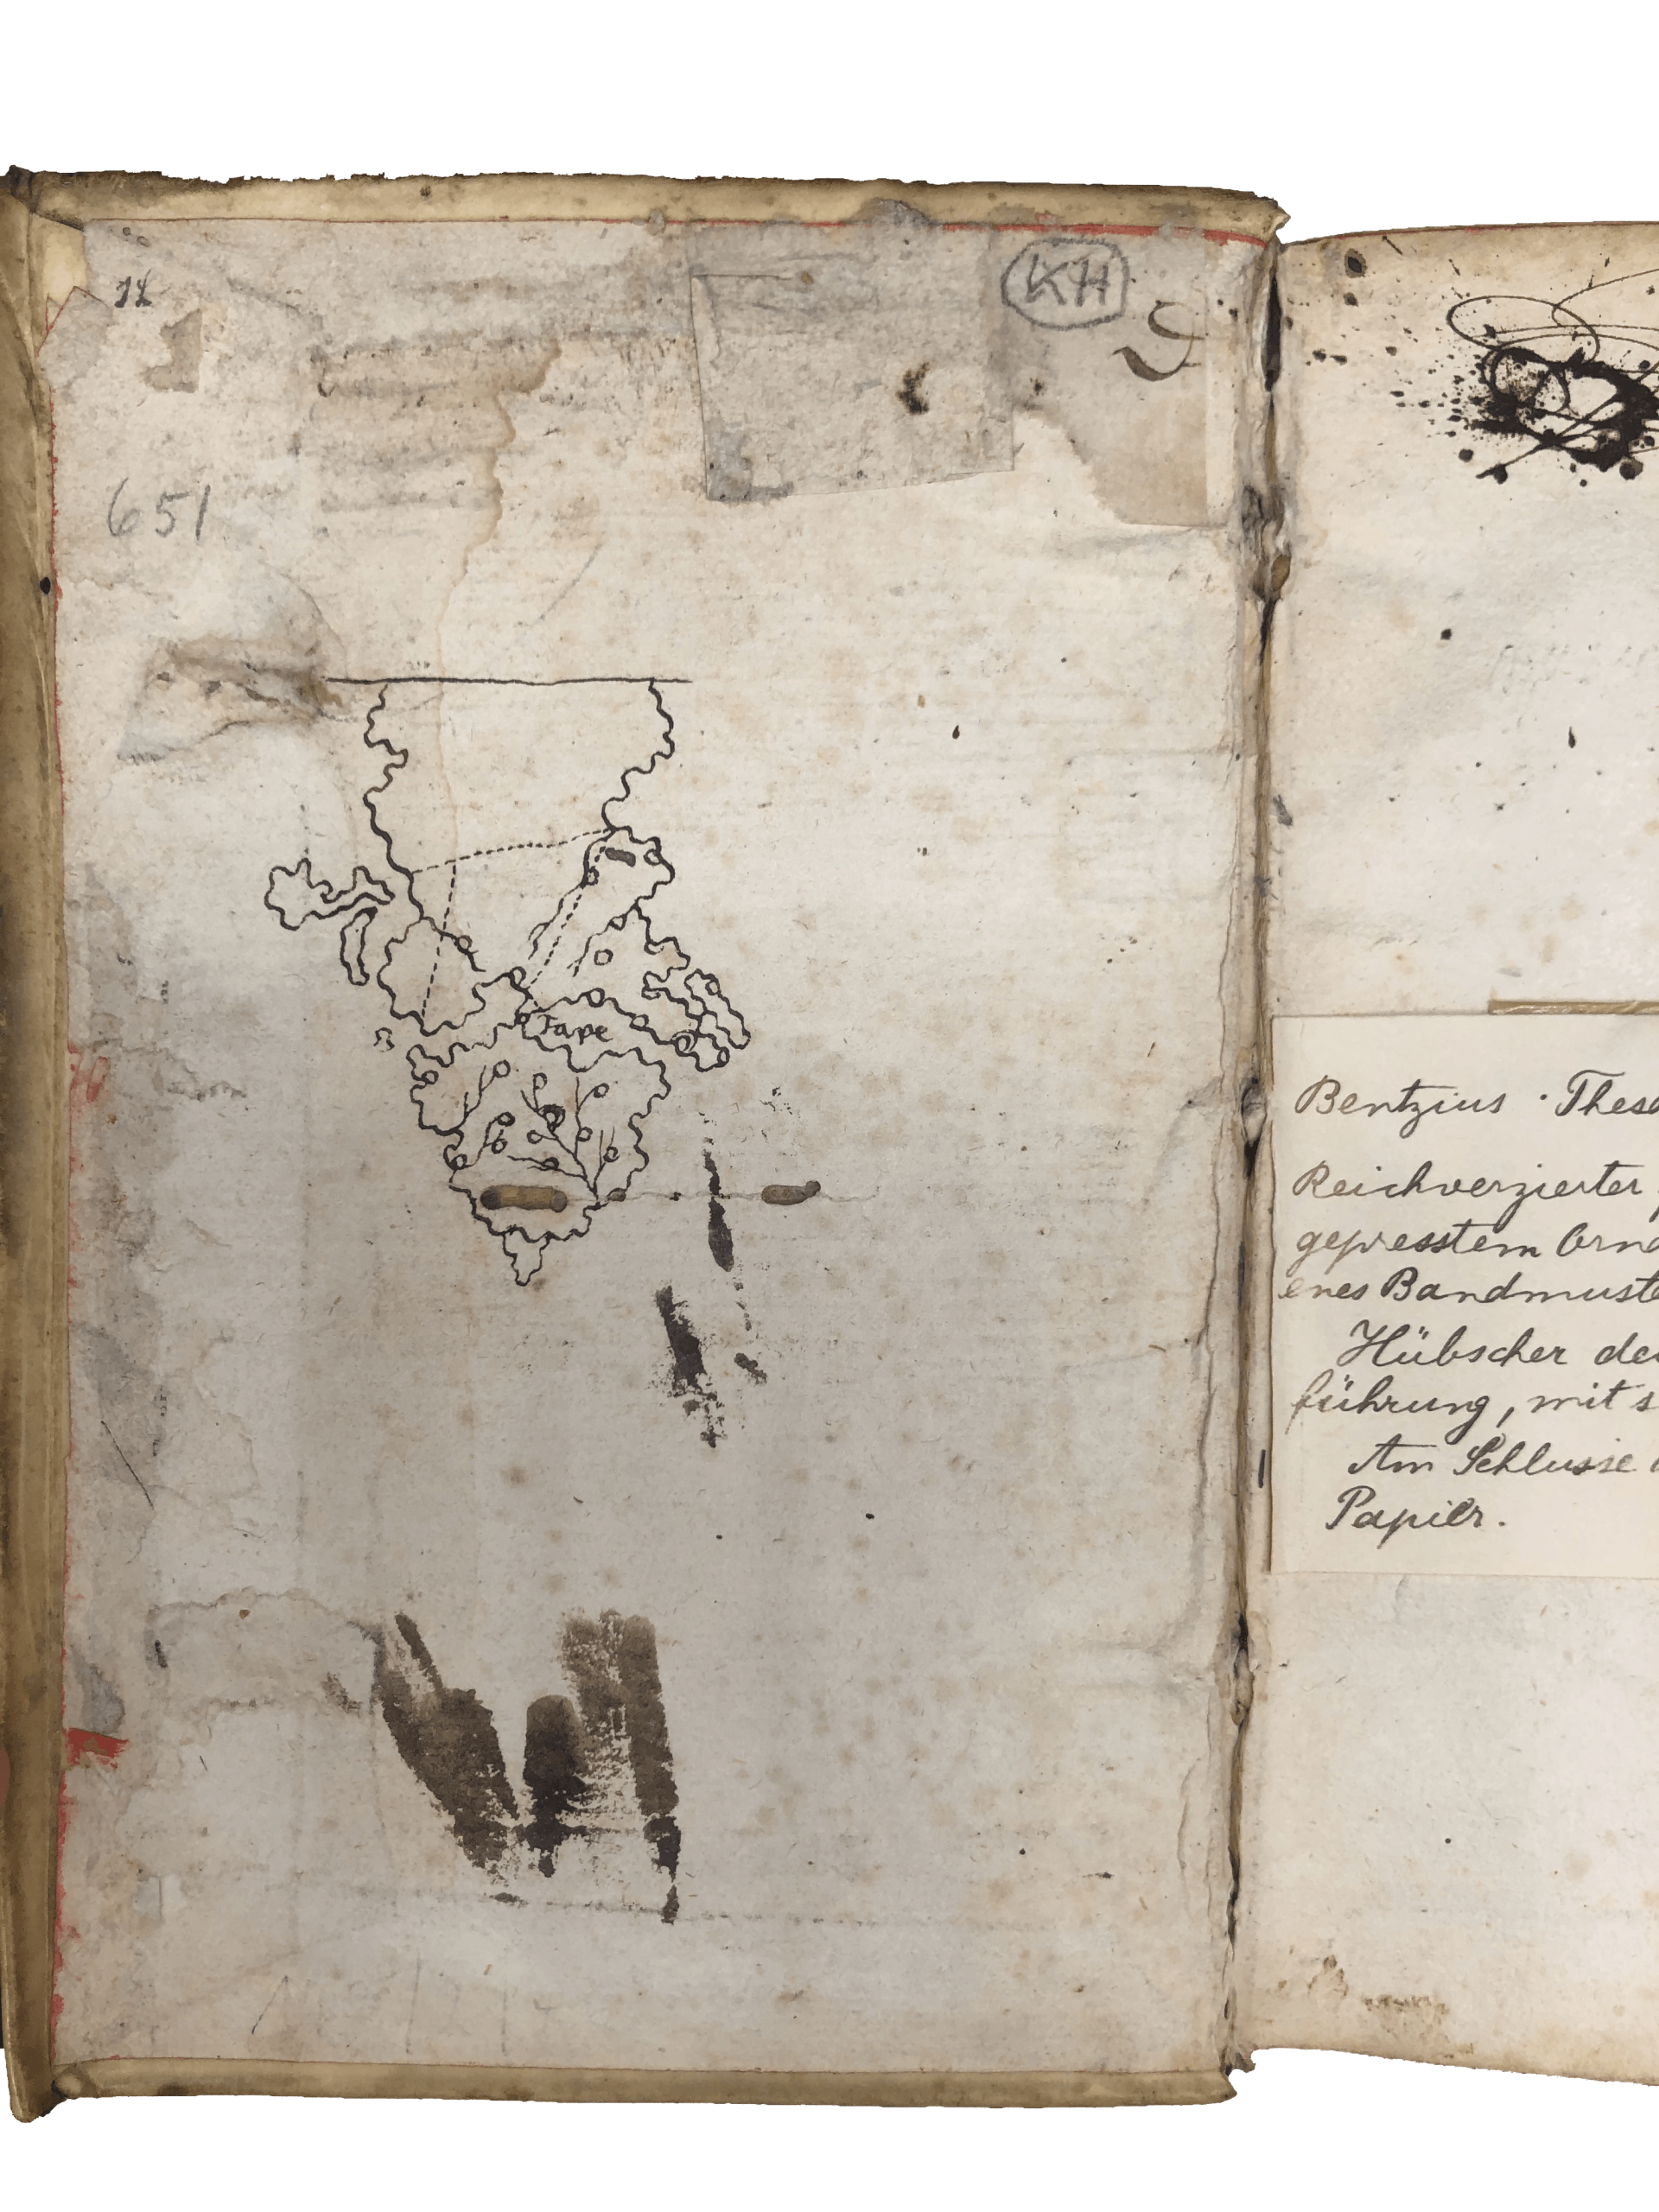 12
KH
D
651
Jape
Bentzius · Thesa
Reichverzierter
gepresstem Orna
enes Bandmuste
Hübscher de
führung, mit s
Am Schlusse
Papier.